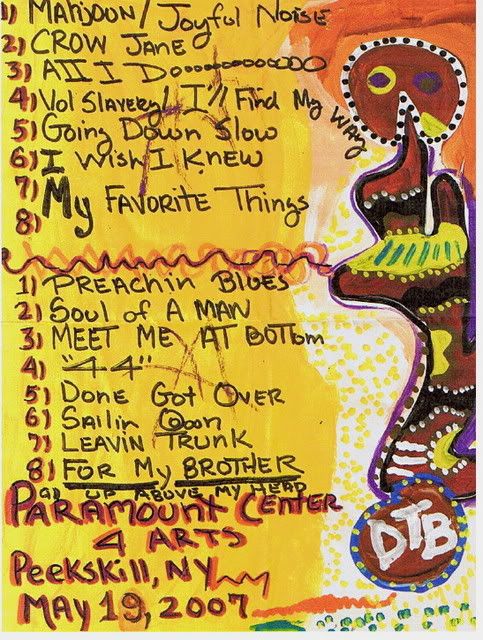 1) MAHJOUN/ Joyful NOISE
2) CROW JANE
3) All I Dooooooooooo
4) Vol Slavery/ I'll Find My WAY
5) Going Down Slow
6) I Wish I Knew
7) My FAVORITE Things
8)
1) PREACHIN BLUES
2) Soul of A MAN
3) MEET ME AT BOTTom
4) "44"
5) DONE GOT OVER
6) Sailin
7) LEAVIN TRUNK
8) FOR My BROTHER
9) UP ABOVE MY HEAD
PARAMOUNT CENTER
4 ARTS
Peekskill, NY
MAY 19, 2007
DTB